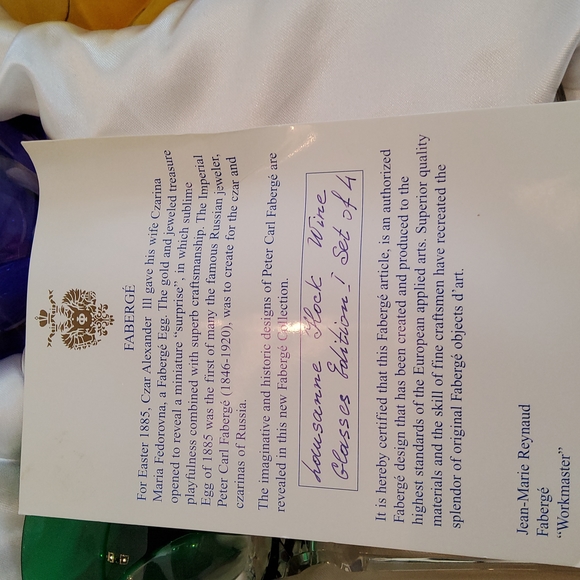 FABERGÉ
For Easter 1885, Czar Alexander lll gave his wife Czarina
Maria Fedorovna, a Fabergé Egg. The gold and jeweled treasure
opened to reveal a miniature "surprise", in which sublime
playfulness combined with superb craftsmanship. The Imperial
Egg of 1885 was the first of many the famous Russian jeweler,
Peter Carl Fabergé (1846-1920), was to create for the czar and
czarinas of Russia.
The imaginative and historic designs of Peter Carl Fabergé are
revealed in this new Fabergé Collection.
Lausanne Hock Wine
Glasses Edition I Set of 4
It is hereby certified that this Fabergé article, is an authorized
Fabergé design that has been created and produced to the
highest standards of the European applied arts. Superior quality
materials and the skill of fine craftsmen have recreated the
splendor of original Fabergé objects d'art.
Jean-Marie Reynaud
Fabergé
"Workmaster"